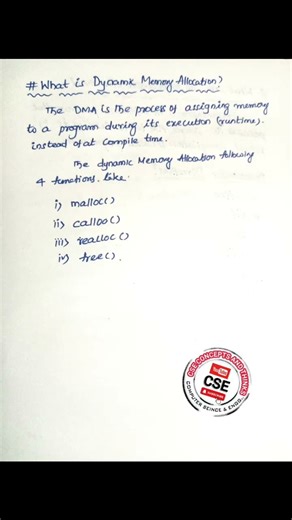 # What is Dynamic Memory Allocation?
The DMA is the process of assigning memory
to a program during its execution (runtime).
instead of at compile time.
The dynamic Memory Allocation following
4 functions. Like
i) malloc()
ii) calloc()
iii) realloc()
iv) free().
CSE CONCEPTS AND THINKS
YouTube
CSE
SUBSCRIBE
COMPUTER SEINCE & ENGG..